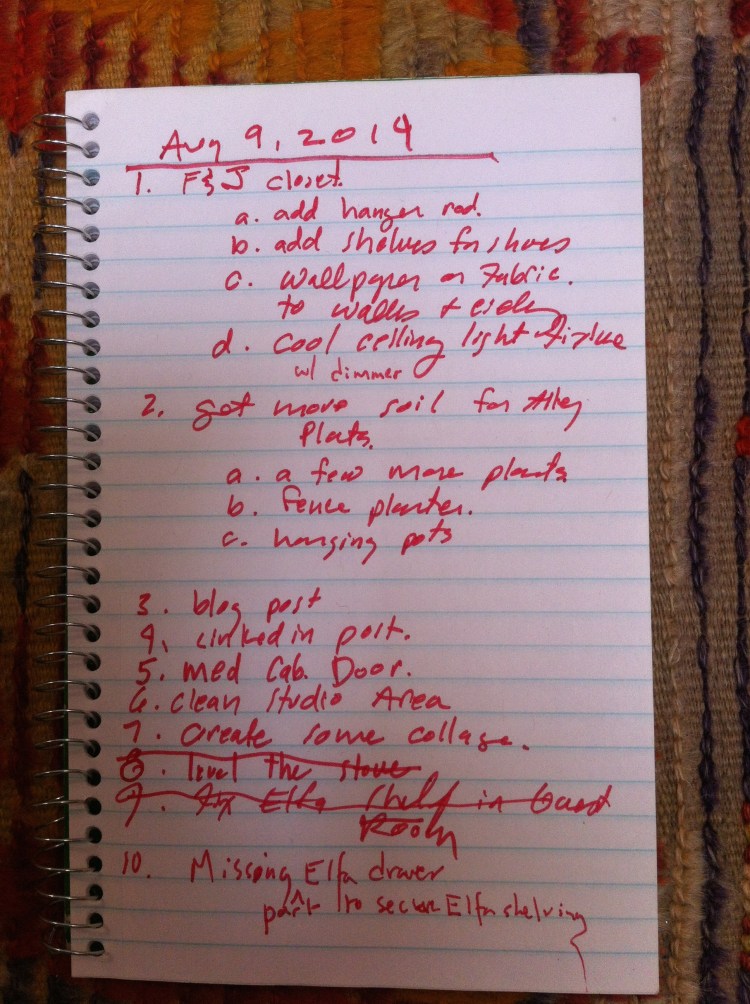 Aug 9, 2014
1. F & J closet.
a. add hanger rod.
b. add shelves for shoes
c. wallpaper or Fabric.
to walls +
d. cool ceiling light fixture
w/ dimmer
2. get more soil for Alley
Plants.
a. a few more plants.
b. fence planter.
c. hanging pots
3. blog post
4. Linkedin post.
5. med Cab. Door.
6. clean Studio Area
7. Create some collage.
8. level the stove
9. fix Elfa shelf in Guest
Room
10. Missing Elfa drawer
part to secure Elfa shelving